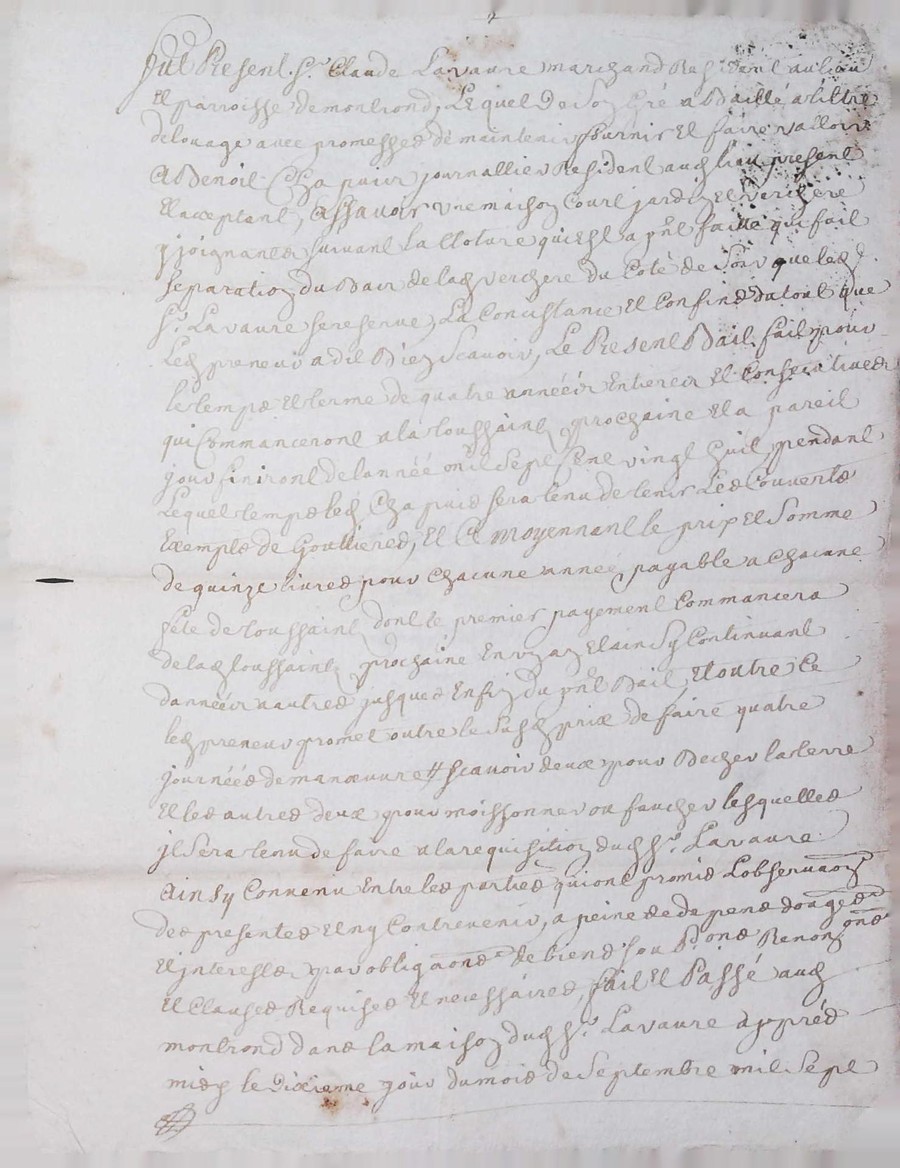 fut Present Sr. Claude Lavaure marchand Resident au lieu
Et parroisse de montrond, Lequel De son Gré a Baillé a tiltre
de louage avec promesses de maintenir fournir Et faire valloir
A Benoit Chapuis journallier Resident aud. lieu present
Et aceptant, assavoir une maison Court jardin Et verchere
y joignants suivant la cloture qui Est a pnt faitte qui fait
separation du Bair de lad. verchere du Coté de soir que led.
Sr. Lavaure se reserve, La Concistance Et Confins du tout que
Led. preneur a dit Bien scavoir, Le Present Bail fait pour
le temps Et terme de quatre années Entieres Et Consecutives
qui Commanceront a la toussaint prochaine Et a pareil
jour finiront de l'année mil sept Cent vingt huit, pendant
Lequel temps led. Chapuis sera tenu de tenir Les Couverts
Exempts de Gouttieres, Et Ce moyennant le prix Et Somme
de quinze livres pour chacune année, payable a chacune
fete de toussaint dont le premier payement Commancera
de lad. toussaint prochaine En un an Et ainsy Continuant
d'années a autres jusques En fin du pnt Bail, Et outre Ce
led. preneur promet outre le susd. prix de faire quatre
journées de manœuvre # scavoir deux pour Becher la terre
Et les autres deux pour moissonner ou faucher lesquelles
jl Sera tenu de faire a la requisition dud. Sr. Lavaure.
Ainsy Convenu Entre les parties qui ont promis L'observaon
des presentes Et ny Contrevenir, a peine de depens domges
Et interests, par obligaons de biens sou Pons Renonons
Et Clauses Requises Et necessaires, fait Et Passé aud.
montrond dans la maison dud. Sr. Lavaure apprés
midy le dixieme jour du mois de Septembre mil Sept